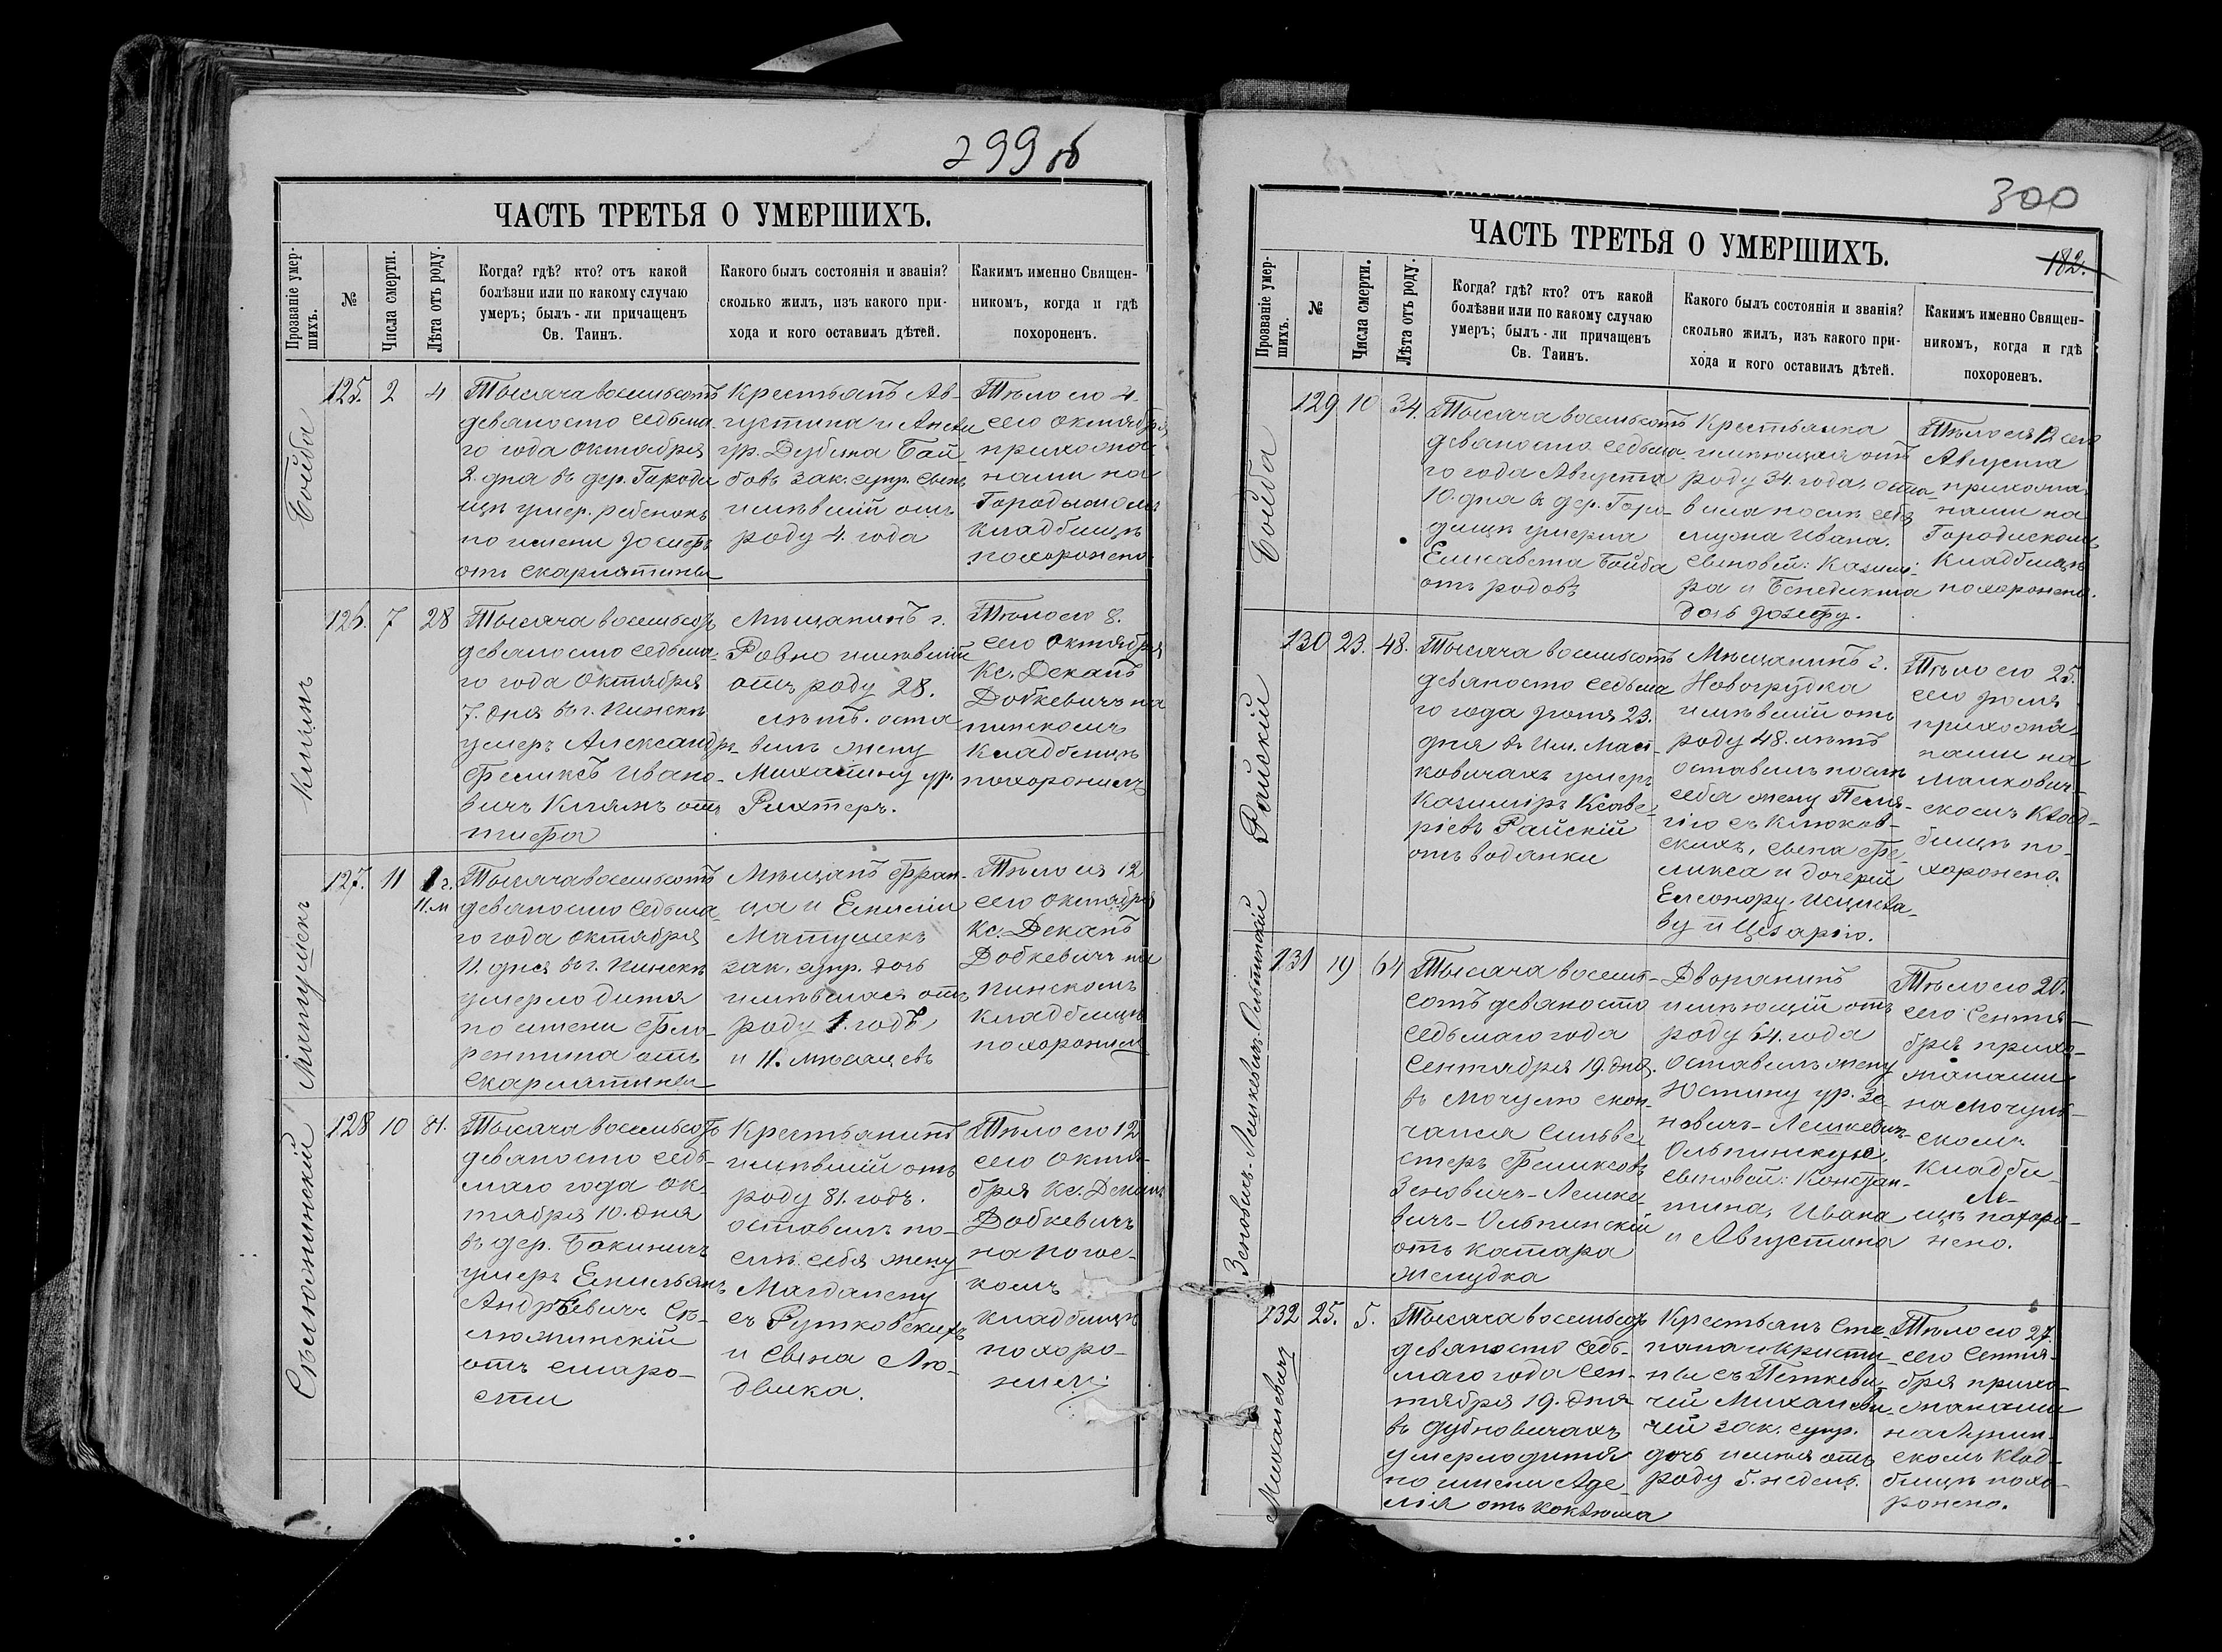 299 об
ЧАСТЬ ТРЕТЬЯ О УМЕРШИХЪ.
Прозваніе умер-
шихъ.
№
Числа смерти.
Лѣта отъ роду.
Когда? гдѣ? кто? отъ какой
болѣзни или по какому случаю
умеръ; былъ-ли причащенъ
Св. Таинъ.
Какого былъ состоянія и званія?
сколько жилъ, изъ какого при-
хода и кого оставилъ дѣтей.
Какимъ именно Священ-
никомъ, когда и гдѣ
похороненъ.
Бойба
125.
2
4
Тысяча восемьсотъ
девяносто седьма-
го года Октября
2. дня въ дер. Городи
щѣ умер. ребенокъ
по имени Іосифъ
отъ скарлатины
Крестьянъ Ав-
густина и Анны
ур. Дубина Бой
бовъ зак. супр. сынъ
имѣвшій отъ
роду 4. года
Тѣло его 4.
сего Октября
прихожа
нами на
кладбищѣ
похоронено
126.
7
28
Тысяча восемьсотъ
девяносто седьма-
го года Октября
7. дня въ г. Пинскѣ
умеръ Александръ
Феликсъ Ивано-
вичъ отъ
тифа
Мѣщанинъ г.
Ровно имѣвшій
отъ роду 28.
лѣтъ. оста
вилъ жену
Михалину ур.
Рихтеръ.
Тѣло его 8.
сего Октября
Кс. Деканъ
Добкевичъ на
пинскомъ
кладбищѣ
похоронилъ
Матушекъ
127.
11
1 г.
11. м
Тысяча восемьсотъ
девяносто седьма-
го года Октября
11. дня въ г. Пинскѣ
умерло дитя
по имени Фло-
рентина отъ
скарлатины
Мѣщанъ Фран-
ца и Емиліи
Матушекъ
зак. супр. дочь
имѣвшая отъ
роду 1. годъ
и 11. мѣсяцевъ
Тѣло ея 12
сего Октября
Кс. Деканъ
Добкевичъ на
пинскомъ
кладбищѣ
похоронилъ
128
10
81.
Тысяча восемьсотъ
девяносто седь-
маго года Ок-
тября 10. дня
въ дер.
умеръ Емильянъ
Андрѣевичъ Сѣ-
отъ старо-
сти
Крестьянинъ
имѣвшій отъ
роду 81. годъ.
оставилъ по-
слѣ себя жену
Магдалену
съ Рутковскихъ
и сына Лю-
двика.
Тѣло его 12
сего Октя-
бря Кс. Деканъ
Добкевичъ
на
кладбищѣ
похоро-
нилъ.
300
182.
ЧАСТЬ ТРЕТЬЯ О УМЕРШИХЪ.
Прозваніе умер-
шихъ.
№
Числа смерти.
Лѣта отъ роду.
Когда? гдѣ? кто? отъ какой
болѣзни или по какому случаю
умеръ; былъ-ли причащенъ
Св. Таинъ.
Какого былъ состоянія и званія?
сколько жилъ, изъ какого при-
хода и кого оставилъ дѣтей.
Какимъ именно Священ-
никомъ, когда и гдѣ
похороненъ.
Бойба
129
10
34.
Тысяча восемьсотъ
девяносто седьма-
го года Августа
10. дня въ дер. Горо-
дищѣ умерла
Елисавета Бойба
отъ родовъ
Крестьянка
имѣющая отъ
роду 34. года. оста-
вила послѣ себя
мужа Ивана.
сыновей: Казими-
ра и Бенедикта
дочь Іозефу.
Тѣло ея 12 сего
Августа
прихожа
нами на
Городискомъ
Кладбищѣ
похоронено.
Райскій
130
23.
48.
Тысяча восемьсотъ
девяносто седьма
го года Іюля 23.
дня въ Им. Мал-
ковичахъ умеръ
Казиміръ Ксаве-
ріевъ Райскій
отъ водянки
Мѣщанинъ г.
Новогрудка
имѣвшій отъ
роду 48. лѣтъ
оставилъ послѣ
себя жену Пеля-
гію съ Клюков-
скихъ, сына Фе-
ликса и дочерей
Елеонору.
ву и Цезарію.
Тѣло его 25.
сего Іюля
прихожа
нами на
малкович-
скомъ Клад-
бищѣ по-
хоронено.
Зеновичъ-Лешкевичъ-Ольпинскій
131
19
64
Тысяча восемь-
сотъ девяносто
седьмаго года
Сентября 19. дня
въ Мочулю скон-
чался Сильве-
стеръ Феликсовъ
Зеновичъ-Лешке-
вичъ-Ольпинскій
отъ катара
желудка
Дворянинъ
имѣющій отъ
роду 64. года
оставилъ жену
Юстину ур. Зе-
новичъ-Лешкевичъ-
Ольпинскую,
сыновей: Констан-
тина, Ивана
и Августина
Тѣло его 20.
сего Сентя-
бря прихо-
жанами
на Мочуль-
скомъ
Кладби-
щѣ похоро-
нено.
Михалевич
132
25.
5.
Тысяча восемьсотъ
девяносто седь-
маго года Сен-
тября 19. дня
въ Дубновичахъ
умерло дитя
по имени Аде-
лія отъ коклюша
Крестьянъ Сте-
пана и Кристи-
ны съ Петкеви-
чей Михалеви-
чей зак. супр.
дочь имѣя отъ
роду 5. недель.
Тѣло его 27.
сего Сентя-
бря прихо-
жанами
на Лунин-
скомъ Клад-
бищѣ похо-
ронено.